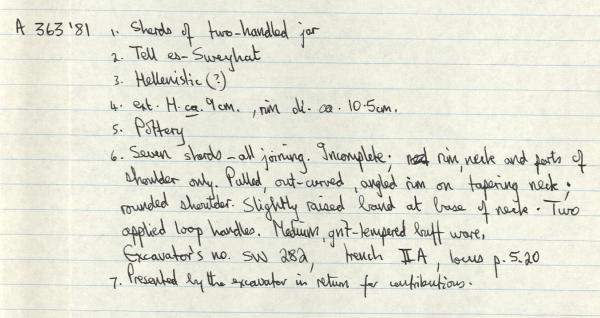 A 363'81 1. Sherds of two-handled jar
2. Tell es-Sweyhat
3. Hellenistic (?)
4. ext. H. ca. 9cm., rim di. ca. 10.5cm.
5. Pottery
6. Seven sherds - all joining. Incomplete; rim, neck and parts of
shoulder only. Pulled, out-curved, angled rim on tapering neck;
rounded shoulder. Slightly raised band at base of neck. Two
applied loop handles. Medium, grit-tempered buff ware.
Excavator's no. SW 282, trench IIA, locus p. 5.20
7. Presented by the excavator in return for contributions.